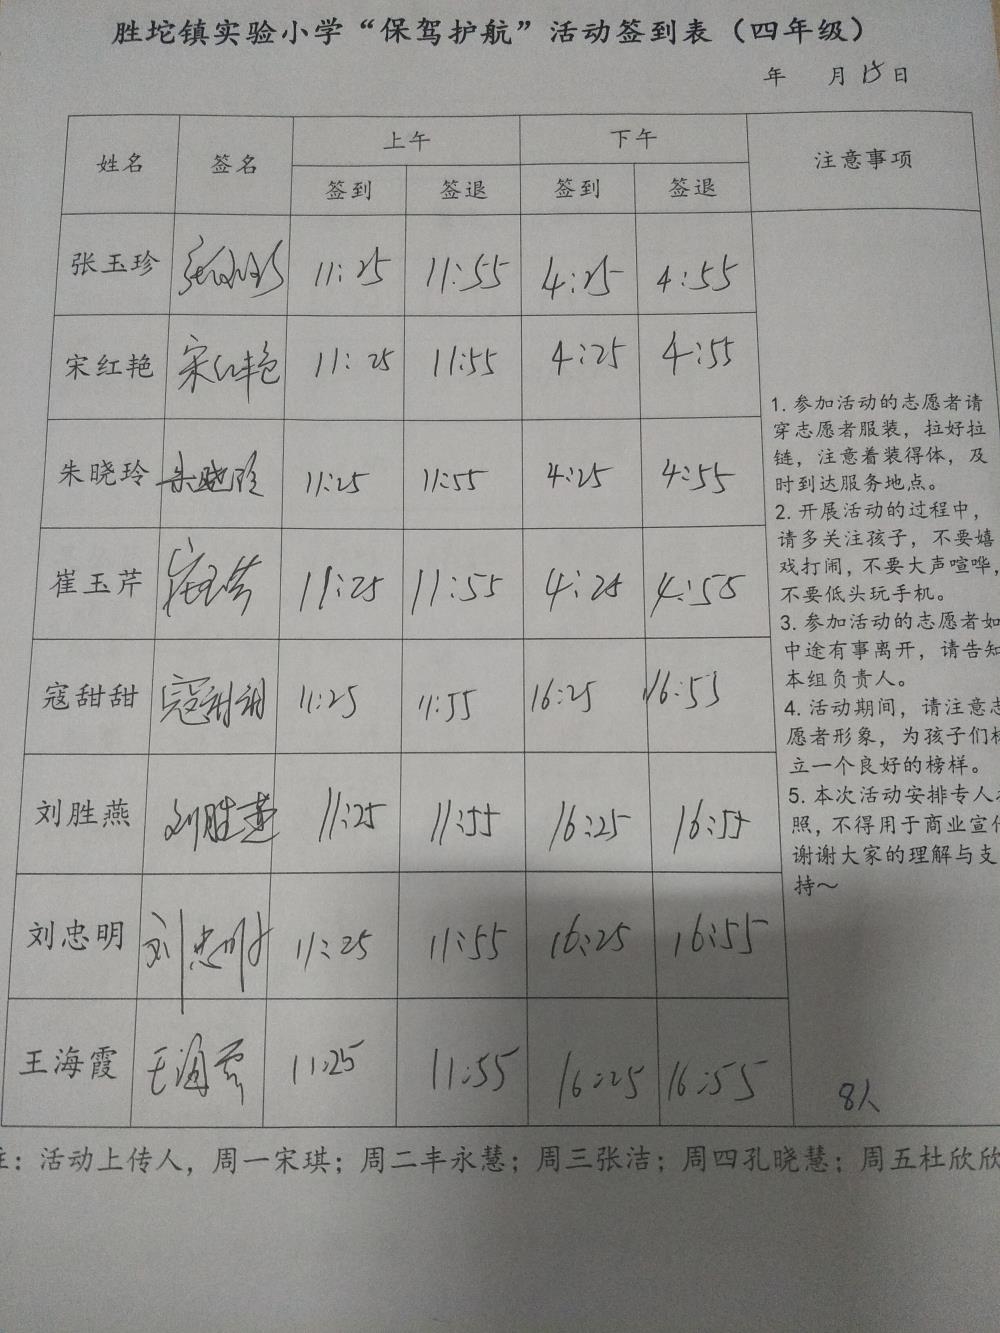 胜坨镇实验小学“保驾护航”活动签到表（四年级）
年 月15日
姓名 签名 上午 下午 注意事项
签到 签退 签到 签退
张玉珍 张玉珍 11:25 11:55 4:25 4:55
宋红艳 宋红艳 11:25 11:55 4:25 4:55
朱晓玲 朱晓玲 11:25 11:55 4:25 4:55
崔玉芹 崔玉芹 11:25 11:55 4:25 4:55
寇甜甜 寇甜甜 11:25 11:55 16:25 16:55
刘胜燕 刘胜燕 11:25 11:55 16:25 16:55
刘忠明 刘忠明 11:25 11:55 16:25 16:55
王海霞 王海霞 11:25 11:55 16:25 16:55
1. 参加活动的志愿者请
穿志愿者服装，拉好拉
链，注意着装得体，及
时到达服务地点。
2. 开展活动的过程中，
请多关注孩子，不要嬉
戏打闹，不要大声喧哗，
不要低头玩手机。
3. 参加活动的志愿者如
中途有事离开，请告知
本组负责人。
4. 活动期间，请注意志
愿者形象，为孩子们树
立一个良好的榜样。
5. 本次活动安排专人
照，不得用于商业宣传
谢谢大家的理解与支
持～
8人
注：活动上传人，周一宋琪；周二丰永慧；周三张洁；周四孔晓慧；周五杜欣欣